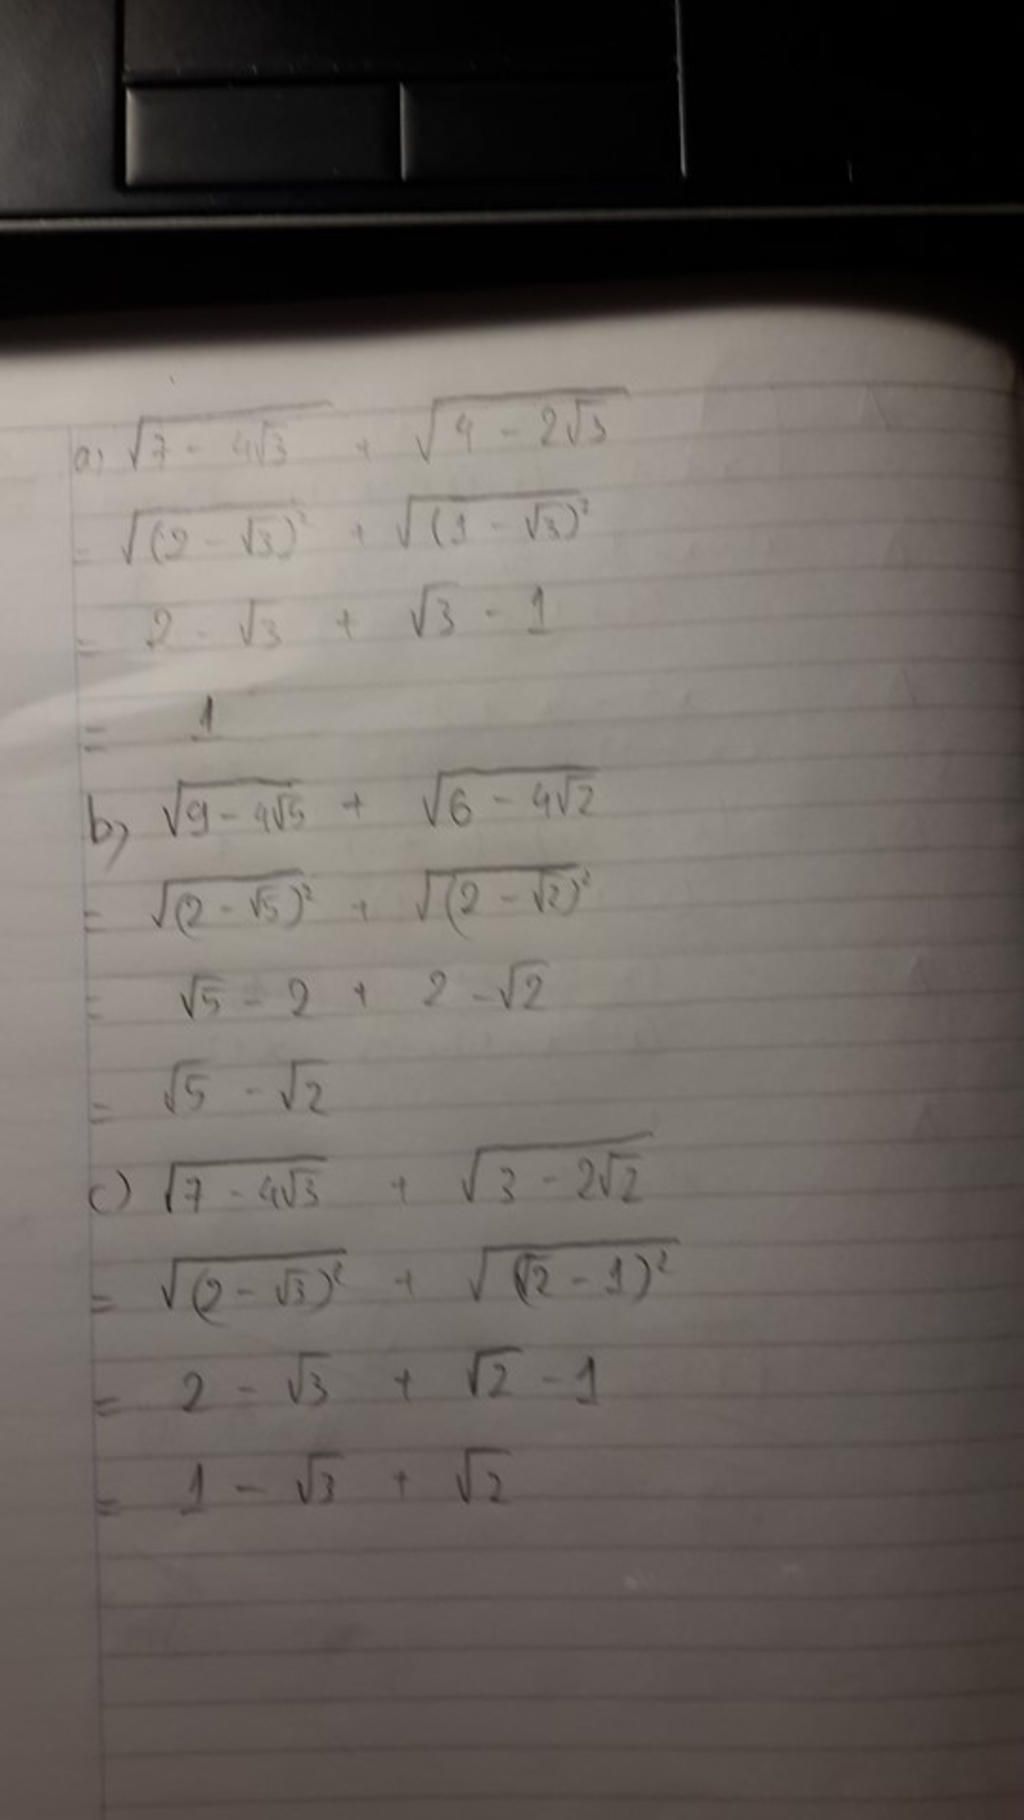 a) √(7 - 4√3) + √(4 - 2√3)
= √((2 - √3)²) + √((1 - √3)²)
= 2 - √3 + √3 - 1
= 1
b) √(9 - 4√5) + √(6 - 4√2)
= √((2 - √5)²) + √((2 - √2)²)
= √5 - 2 + 2 - √2
= √5 - √2
c) √(7 - 4√3) + √(3 - 2√2)
= √((2 - √3)²) + √((√2 - 1)²)
= 2 - √3 + √2 - 1
= 1 - √3 + √2